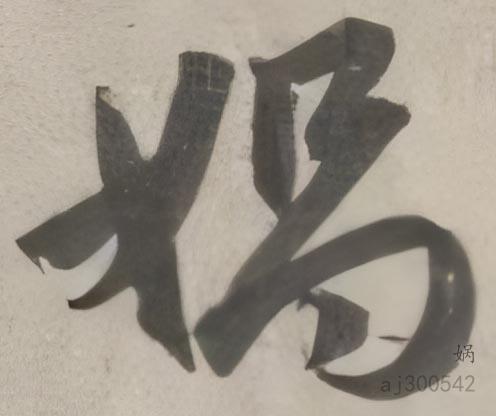 娲
娲
aj300542